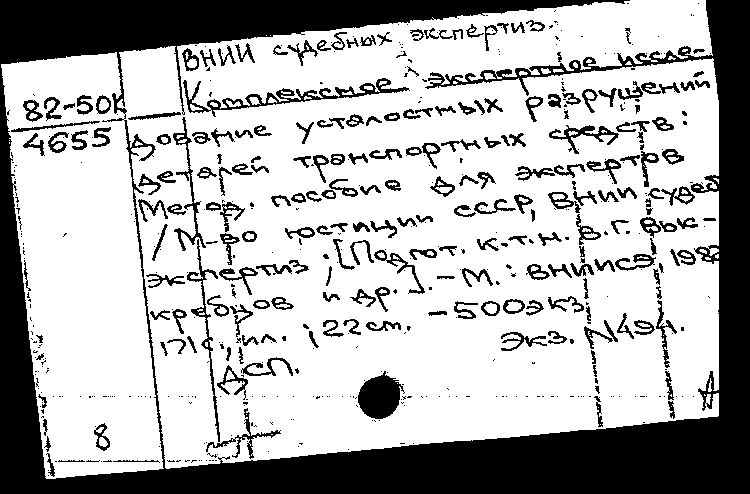 ВНИИ судебных экспертиз.
82-50К Комплексное экспертное иссле-
4655 дование усталостных разрушений
деталей транспортных средств:
Метод. пособие для экспертов
/ М-во юстиции СССР, ВНИИ судеб
экспертиз; [Подгот. к.т.н. В.Г. Вык-
кребцов и др.]. - М.: ВНИИСЭ, 1982
171 с., ил.; 22 см. - 500 экз
Экз. N494.
ДСП.
8